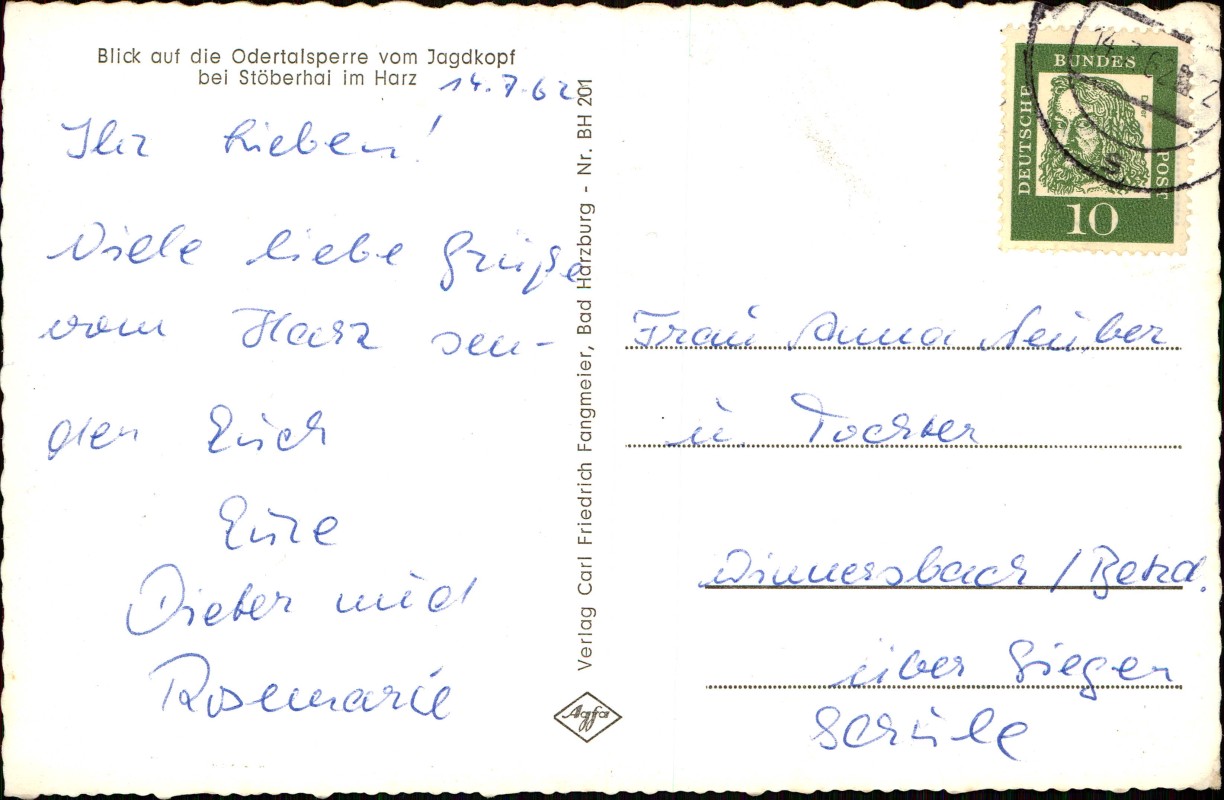 Blick auf die Odertalsperre vom Jagdkopf
bei Stöberhai im Harz
14.7.62
Ihr Lieben!
Viele liebe Grüße
vom Harz sen-
den Euch
Eure
Dieter und
Rosemarie
Verlag Carl Friedrich Fangmeier, Bad Harzburg - Nr. BH 201
Agfa
DEUTSCHE
BUNDES
POST
10
14.7.62
s
Frau Anna Neuber
u. Tochter
Wimmersbach /
über Siegen
Schule